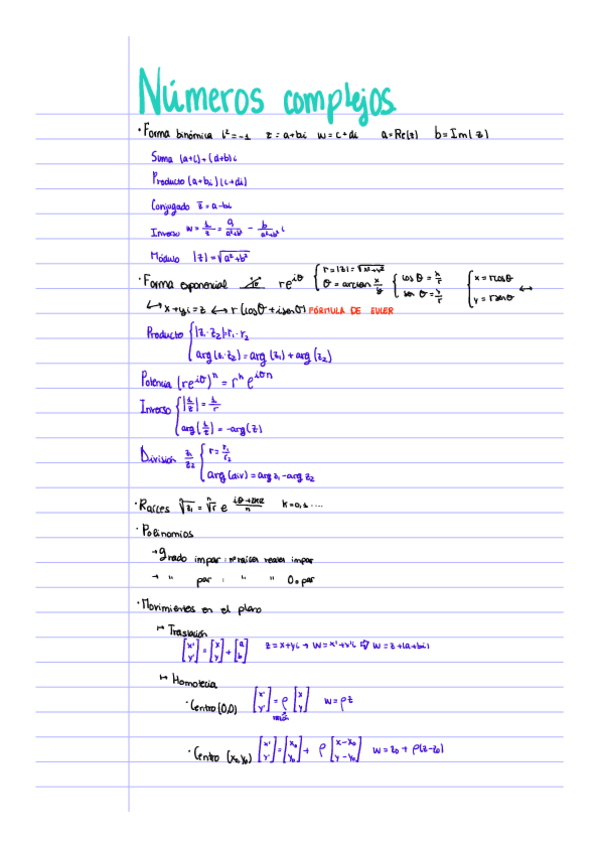 Números complejos
· Forma binómica i²=-1 z=a+bi w=c+di a=Re(z) b=Im(z)
Suma (a+c)+(d+b)i
Producto (a+bi)(c+di)
Conjugado z̄=a-bi
Inverso w=1/z = a/(a²+b²) - b/(a²+b²) i
Módulo |z|=√(a²+b²)
· Forma exponencial re^(iθ) { r=|z|=√(x²+y²) θ=arctan { cos θ = x/r sen θ = y/r { x=rcosθ y=rsenθ ↔
↔ x+yi=z ↔ r(cosθ+isenθ) FÓRMULA DE EULER
Producto { |z₁·z₂|=r₁·r₂
arg(z₁·z₂)=arg(z₁)+arg(z₂)
Potencia (re^(iθ))^n = r^n e^(iθn)
Inverso { |1/z| = 1/r
arg(1/z) = -arg(z)
División z₁/z₂ { r=r₁/r₂
arg(div)=arg z₁-arg z₂
· Raíces ⁿ√z₁ = ⁿ√r e^((iθ+2πk)/n) k=0,1....
· Polinomios
→ grado impar: nº raíces reales impar
→ " par: " " 0 o par
· Movimientos en el plano
↦ Traslación
[x' y'] = [x y] + [a b] z=x+yi → w=x'+y'i ⇨ w=z+(a+bi)
↦ Homotecia
· Centro (0,0) [x' y'] = ρ [x y] w=ρz
razón
· Centro (x₀,y₀) [x' y'] = [x₀ y₀] + ρ [x-x₀ y-y₀] w=z₀+ρ(z-z₀)